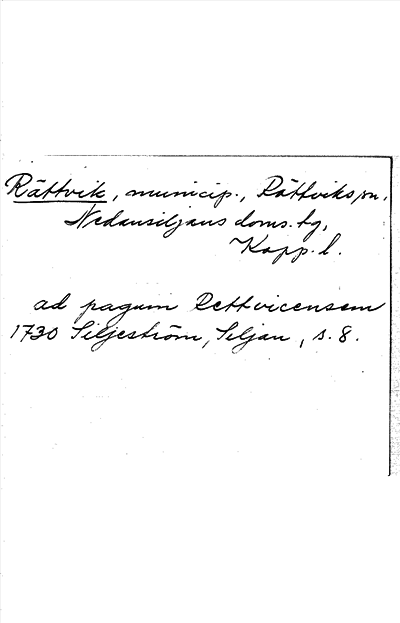 Rättvik, municip., Rättviks sn,
Nedansiljans doms. tg,
Kopp. l.
ad pagum Rettvicensem
1730 Siljeström, Siljan, s. 8.